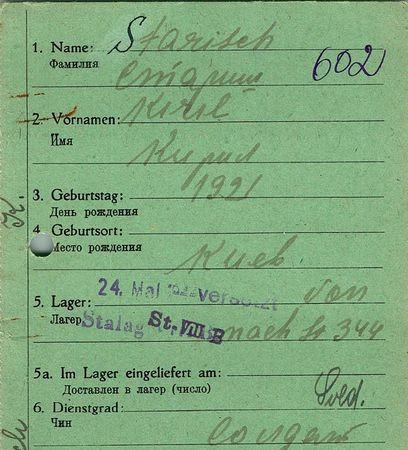 1. Name: Starisch
Фамилия
602
Стариш
2. Vornamen: Kiril
Имя
Кирил
3. Geburtstag: 1921
День рождения
4. Geburtsort:
Место рождения
Киев
24. Mai versetzt von
5. Lager:
Лагер Stalag St. VIII B nach St 344
5a. Im Lager eingeliefert am:
Доставлен в лагер (число)
Sold.
6. Dienstgrad:
Чин
солдат